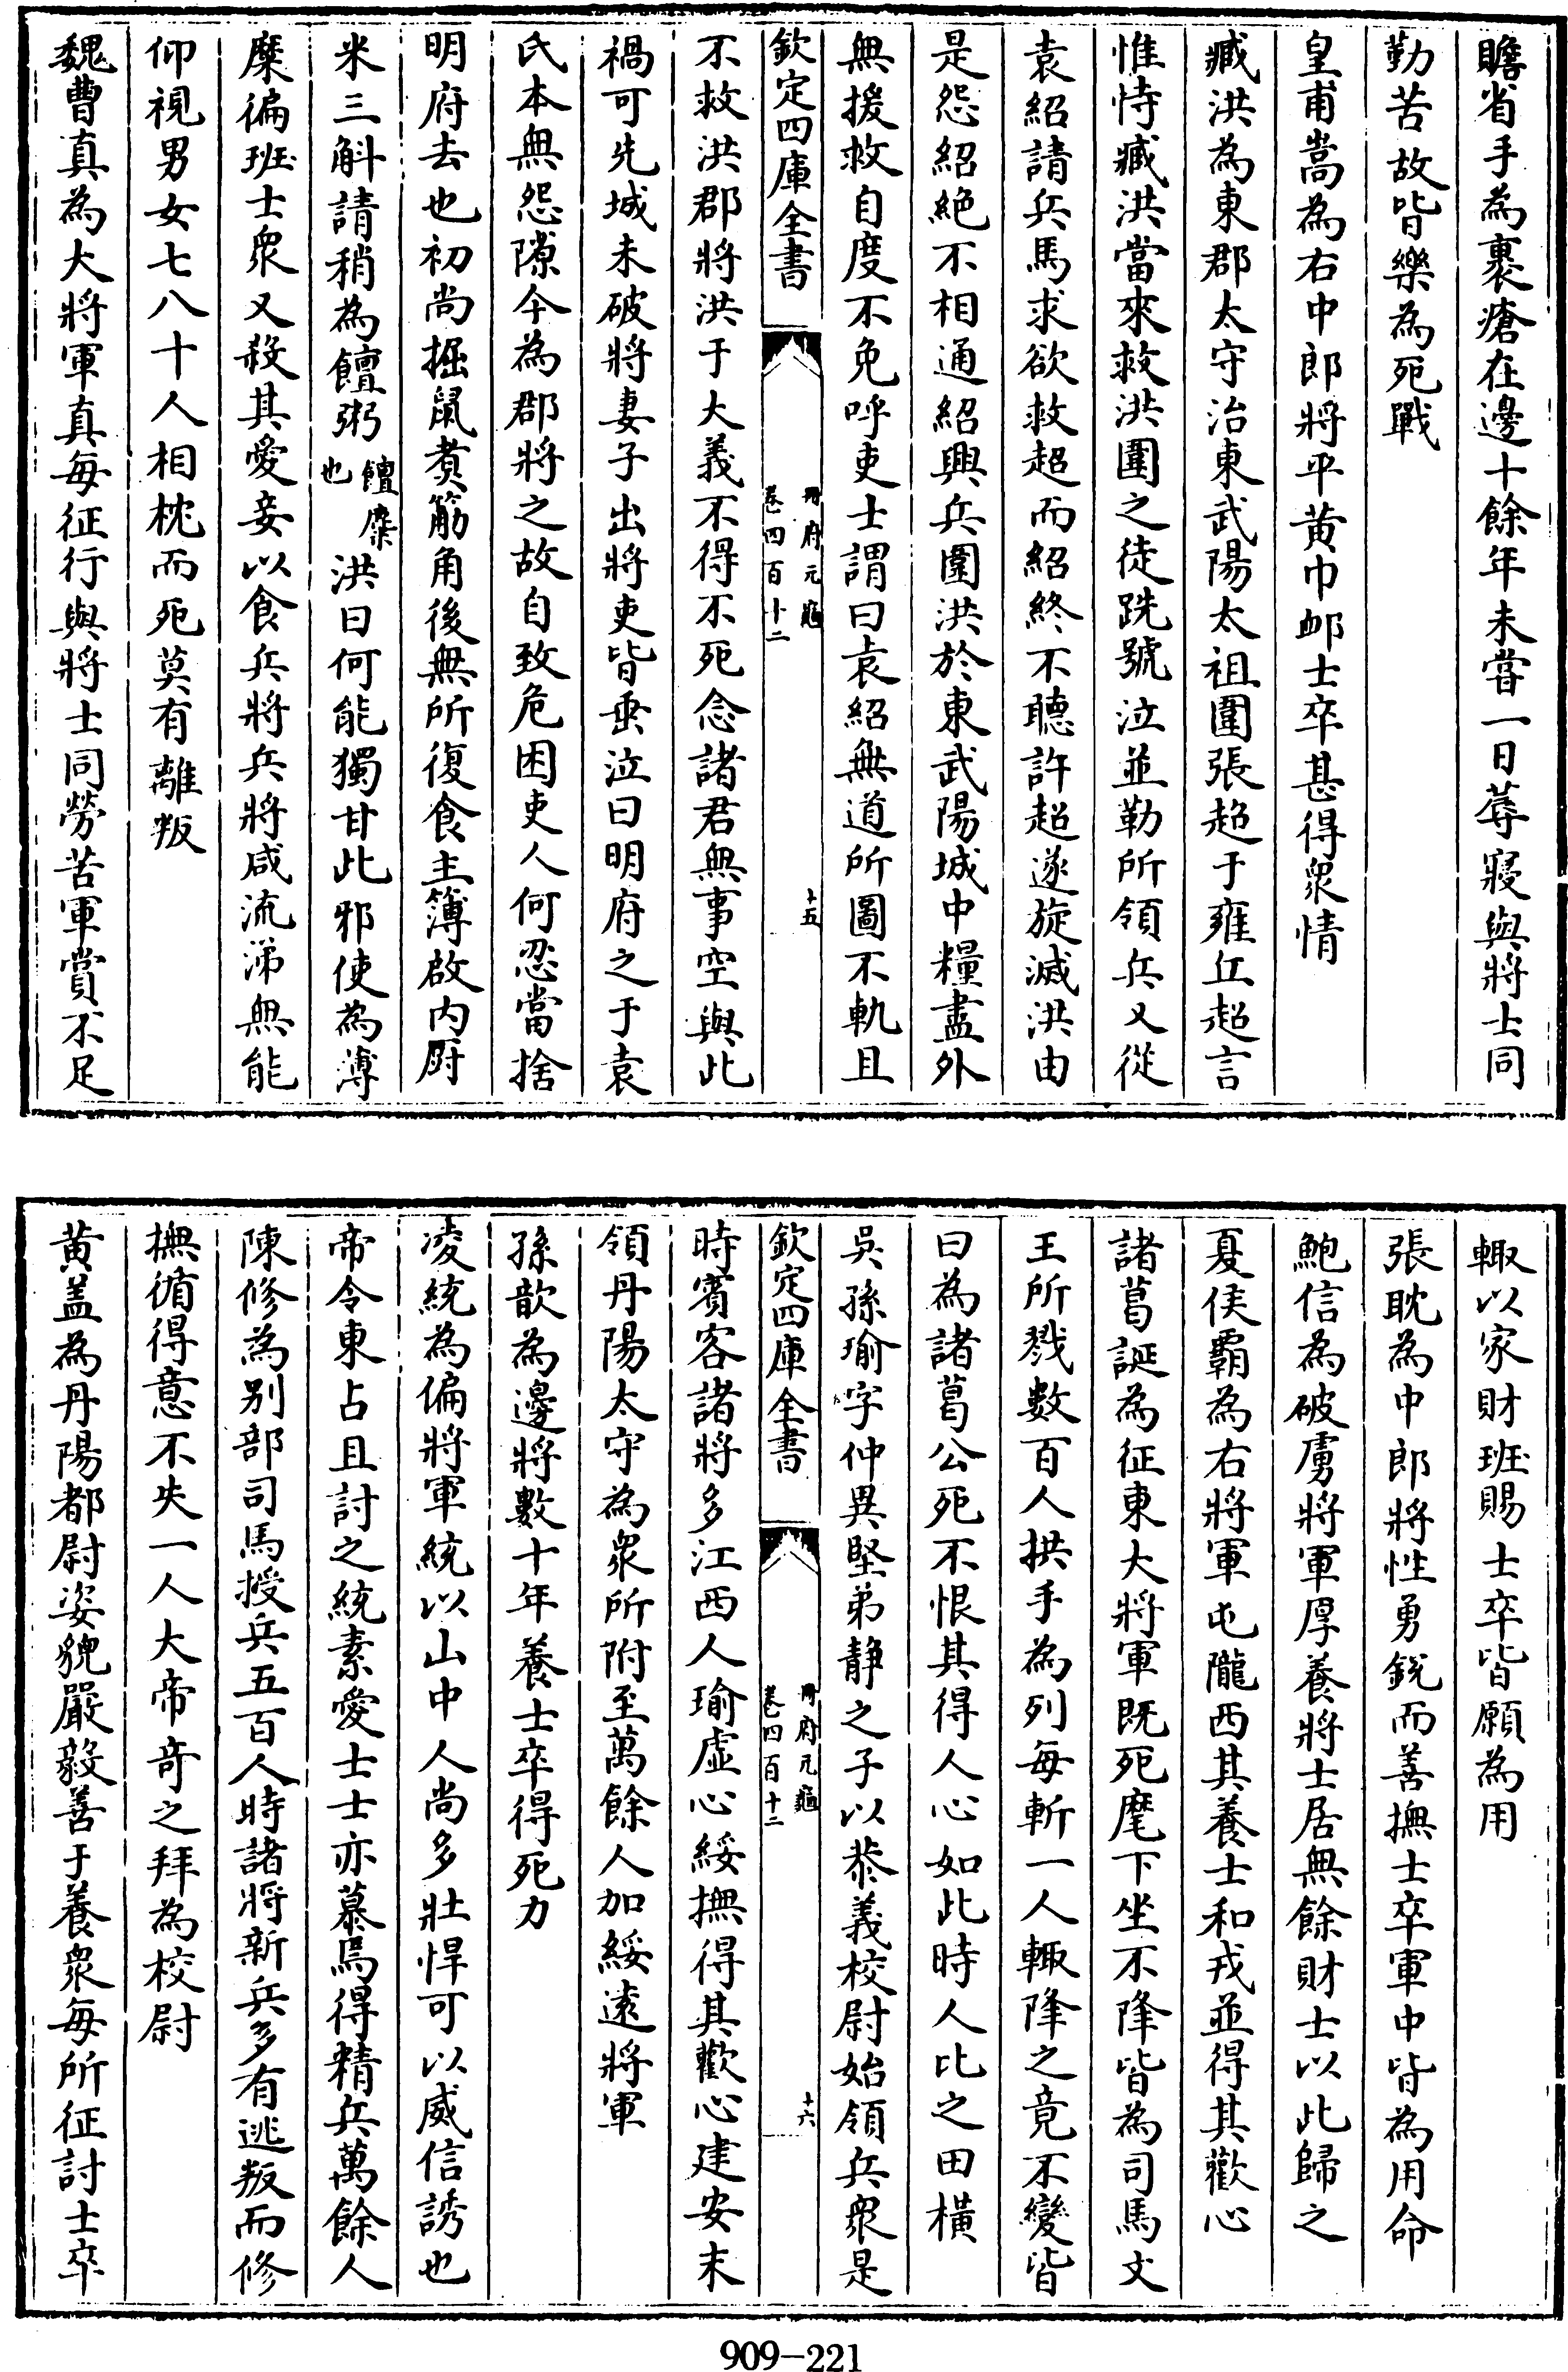 瞻省手為裹瘡在邊十餘年未嘗一日蓐寢與將士同
勤苦故皆樂為死戰
皇甫嵩為右中郎將平黄巾郵士卒甚得衆情
臧洪為東郡太守治東武陽太祖圍張超于雍丘超言
惟恃臧洪當來救洪圍之徒跣號泣並勒所領兵又從
袁紹請兵馬求欲救超而紹終不聽許超遂旋滅洪由
是怨紹絶不相通紹興兵圍洪於東武陽城中糧盡外
無援救自度不免呼吏士謂曰袁紹無道所圖不軌且
欽定四庫全書
冊府元龜
卷四百十二
十五
不救洪郡將洪于大義不得不死念諸君無事空與此
禍可先城未破將妻子出將吏皆垂泣曰明府之于袁
氏本無怨隙今為郡將之故自致危困吏人何忍當捨
明府去也初尚掘鼠煑筋角後無所復食主簿啟内厨
米三斛請稍為饘粥饘糜也洪曰何能獨甘此邪使為薄
糜徧班士衆又殺其愛妾以食兵將兵將咸流涕無能
仰視男女七八十人相枕而死莫有離叛
魏曹真為大將軍真每征行與將士同勞苦軍賞不足
輙以家財班賜士卒皆願為用
張耽為中郎將性勇銳而善撫士卒軍中皆為用命
鮑信為破虜將軍厚養將士居無餘財士以此歸之
夏侯霸為右將軍屯隴西其養士和戎並得其歡心
諸葛誕為征東大將軍既死麾下坐不降皆為司馬文
王所戮數百人拱手為列每斬一人輙降之竟不變皆
曰為諸葛公死不恨其得人心如此時人比之田横
吳孫瑜字仲異堅弟静之子以恭義校尉始領兵衆是
欽定四庫全書
冊府元龜
卷四百十二
十六
時賓客諸將多江西人瑜虛心綏撫得其歡心建安末
領丹陽太守為衆所附至萬餘人加綏遠將軍
孫歆為邊將數十年養士卒得死力
凌統為偏將軍統以山中人尚多壯悍可以威信誘也
帝令東占且討之統素愛士士亦慕焉得精兵萬餘人
陳修為别部司馬授兵五百人時諸將新兵多有逃叛而修
撫循得意不失一人大帝竒之拜為校尉
黄盖為丹陽都尉姿貌嚴毅善于養衆每所征討士卒
909-221